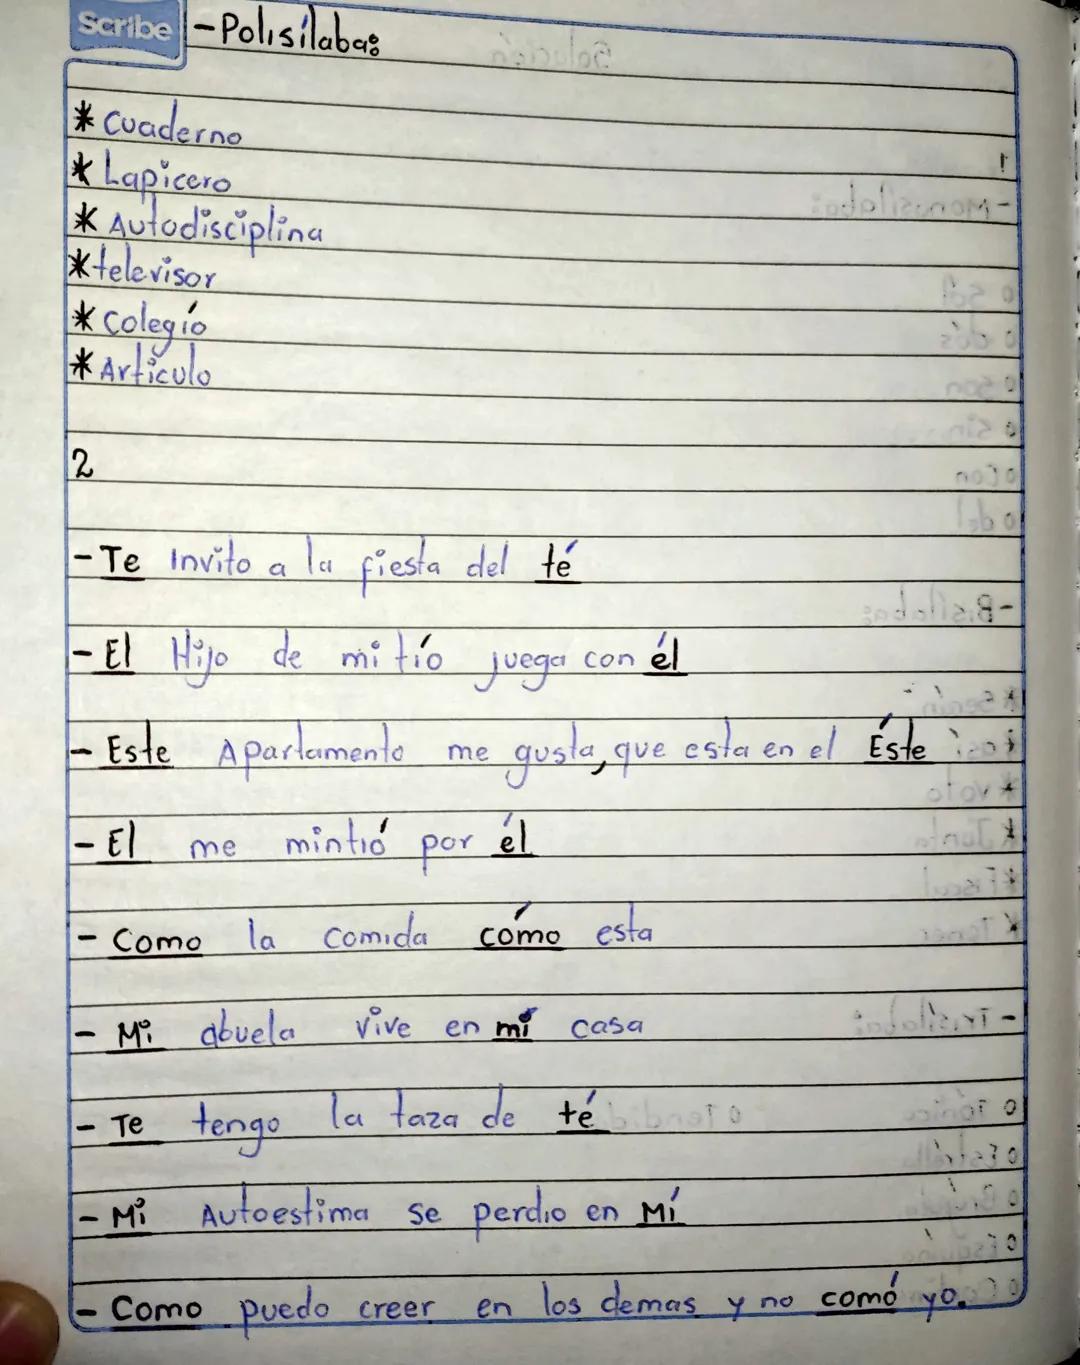 Scribe
-Polisílaba:
* Cuaderno
* Lapicero
* Autodisciplina
* televisor
* Colegío
* Artículo
2
- Te Invito a la fiesta del té
- El Hijo de mi tío juega con él
- Este Apartamento me gusta, que esta en el Éste
- El me mintió por él
- Como la comida cómo esta
- Mi abuela vive en mí casa
- Te tengo la taza de té
- Mi Autoestima se perdio en Mí
- Como puedo creer en los demas y no comó yo.